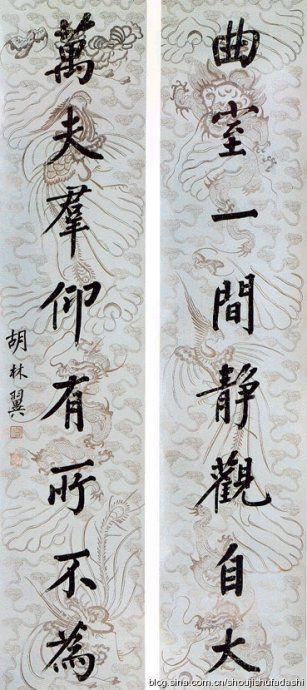 曲室一間靜觀自大
萬夫羣仰有所不為
胡林翼
blog.sina.com.cn/shoujishufadashi